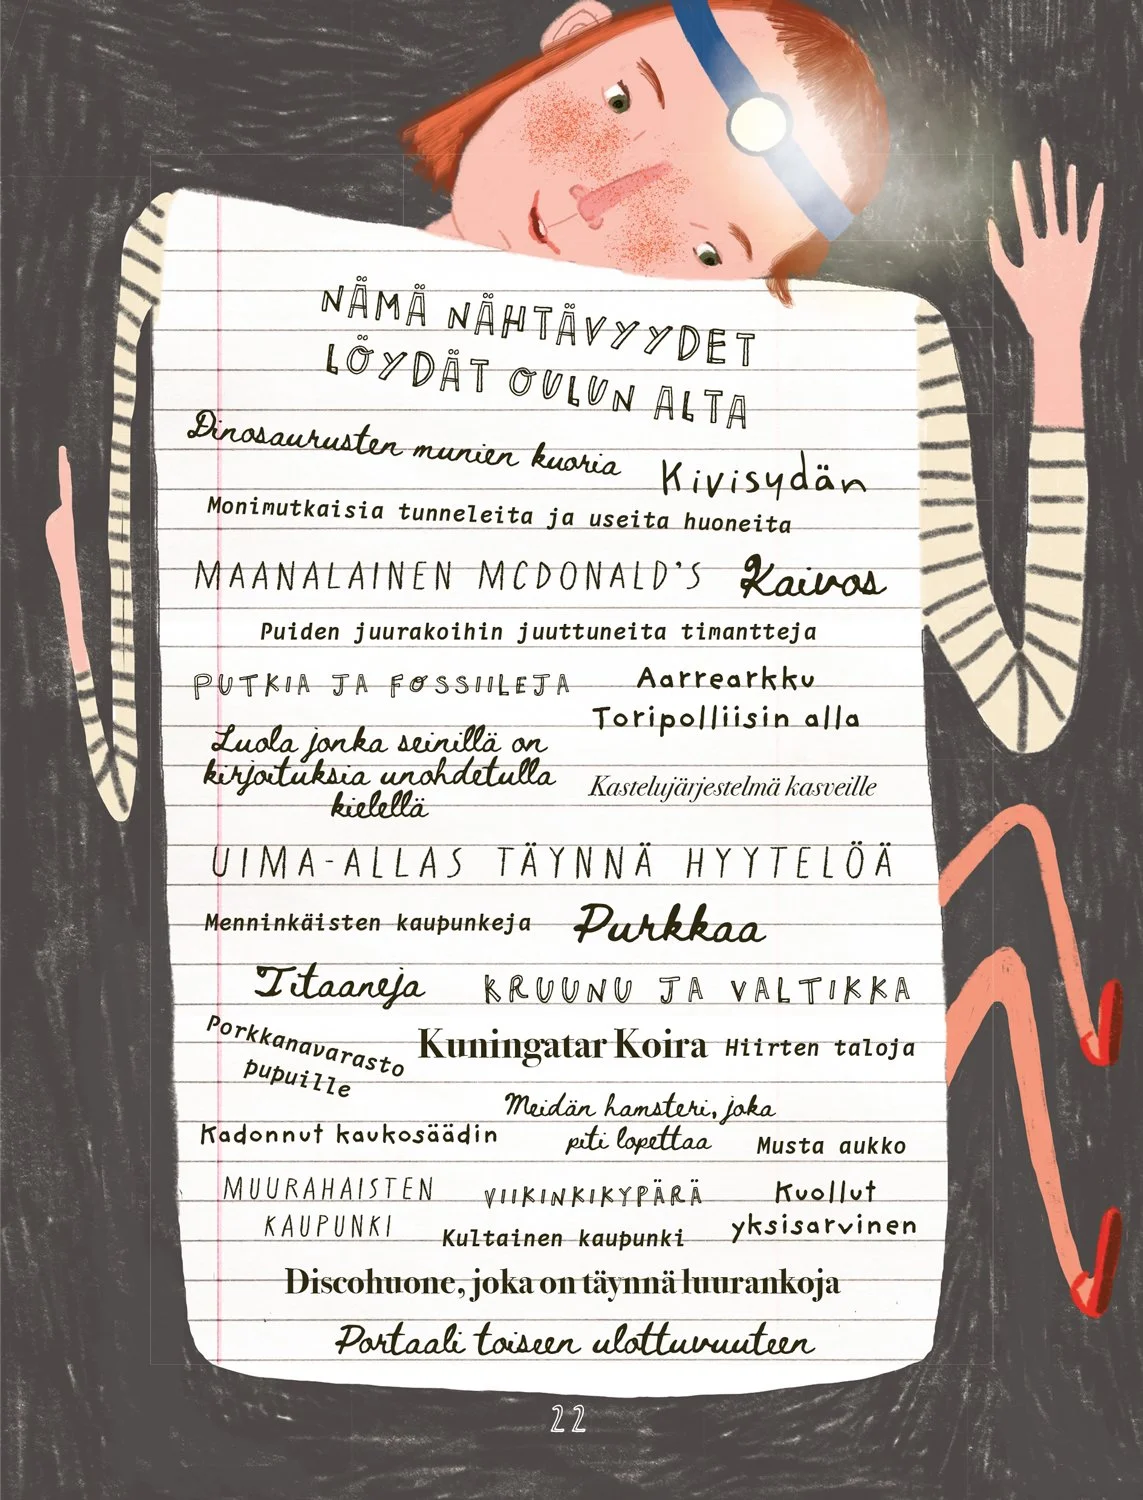 NÄMÄ NÄHTÄVYYDET
LÖYDÄT OULUN ALTA
Dinosaurusten munien kuoria
Kivisydän
Monimutkaisia tunneleita ja useita huoneita
MAANALAINEN MCDONALD'S
Kaivos
Puiden juurakoihin juuttuneita timantteja
PUTKIA JA FOSSIILEJA
Aarrearkku
Toripolliisin alla
Luola jonka seinillä on
kirjoituksia unohdetulla
kielellä
Kastelujärjestelmä kasveille
UIMA-ALLAS TÄYNNÄ HYYTELÖÄ
Menninkäisten kaupunkeja
Purkkaa
Titaaneja
KRUUNU JA VALTIKKA
Porkkanavarasto
pupuille
Kuningatar Koira
Hiirten taloja
Meidän hamsteri, joka
piti lopettaa
Kadonnut kaukosäädin
Musta aukko
MUURAHAISTEN
KAUPUNKI
VIIKINKIKYPÄRÄ
Kuollut
yksisarvinen
Kultainen kaupunki
Discohuone, joka on täynnä luurankoja
Portaali toiseen ulottuvuuteen
22